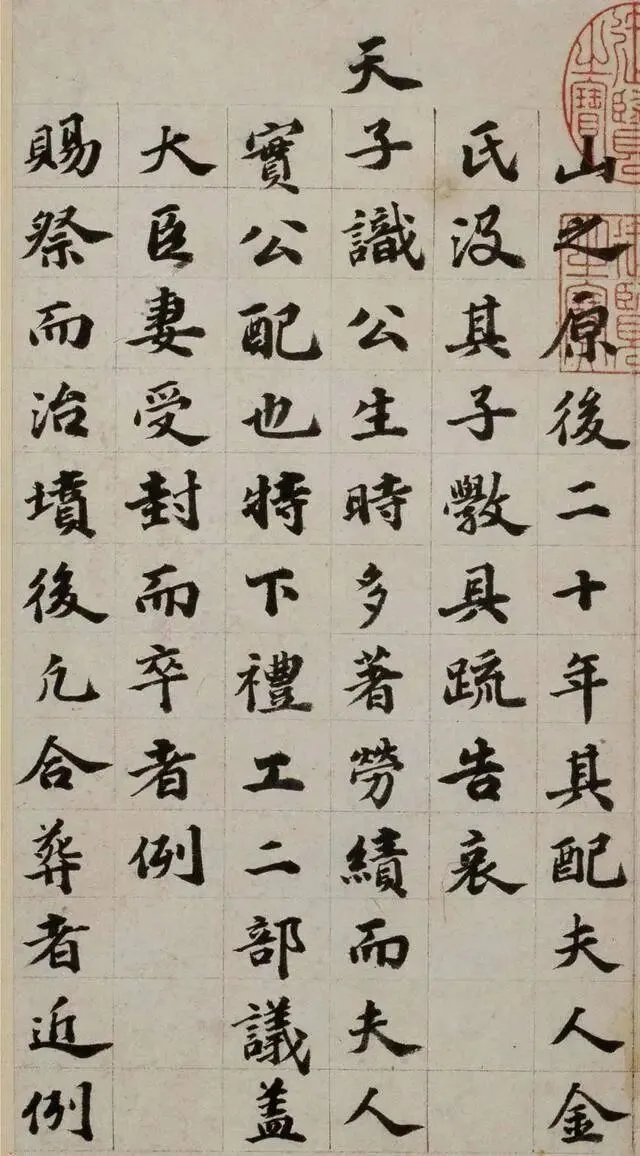 山之原後二十年其配夫人金
氏没其子斆具疏告哀
天子識公生時多著勞績而夫人
實公配也特下禮工二部議蓋
大臣妻受封而卒者例
賜祭而治墳後凢合葬者近例